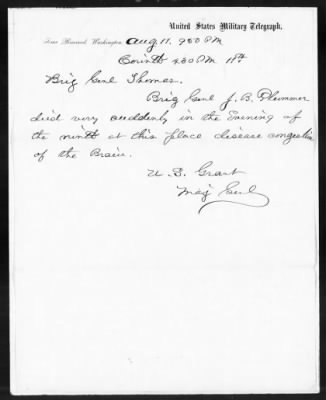 United States Military Telegraph.
Time Received, Washington, Aug 11. 950 PM
Corinth 430 PM
Brig Genl Thomas.
Brig Genl J. B. Plummer
died very suddenly in the Evening of
the ninth at this place disease congestion
of the Brain.
U. S. Grant
Maj Genl